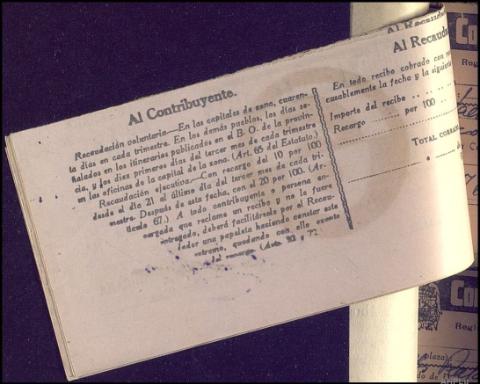 Al Contribuyente.
Recaudación voluntaria—En las capitales de zona, cuaren-
ta días en cada trimestre. En los demás pueblos, los días se-
ñalados en los itinerarios publicados en el B. O. de la provin-
cia, y los diez primeros días del tercer mes de cada trimestre
en las oficinas de la capital de la zona. (Art. 65 del Estatuto.)
Recaudación ejecutiva—Con recargo del 10 por 100
desde el día 21 al último día del tercer mes de cada tri-
mestre. Después de esta fecha, con el 20 por 100. (Ar-
tículo 67.) A todo contribuyente o persona en-
cargada que reclame un recibo y no le fuere
entregado, deberá facilitársele por el Recau-
dador una papeleta haciendo constar este
extremo, quedando con ello exento
del recargo.
Al Recauda
Al Recauda
En todo recibo cobrado con re
cusablemente la fecha y la siguiente
Importe del recibo
Recargo por 100
TOTAL COBRAD
Con
Regi
Con
Regi
plaza)